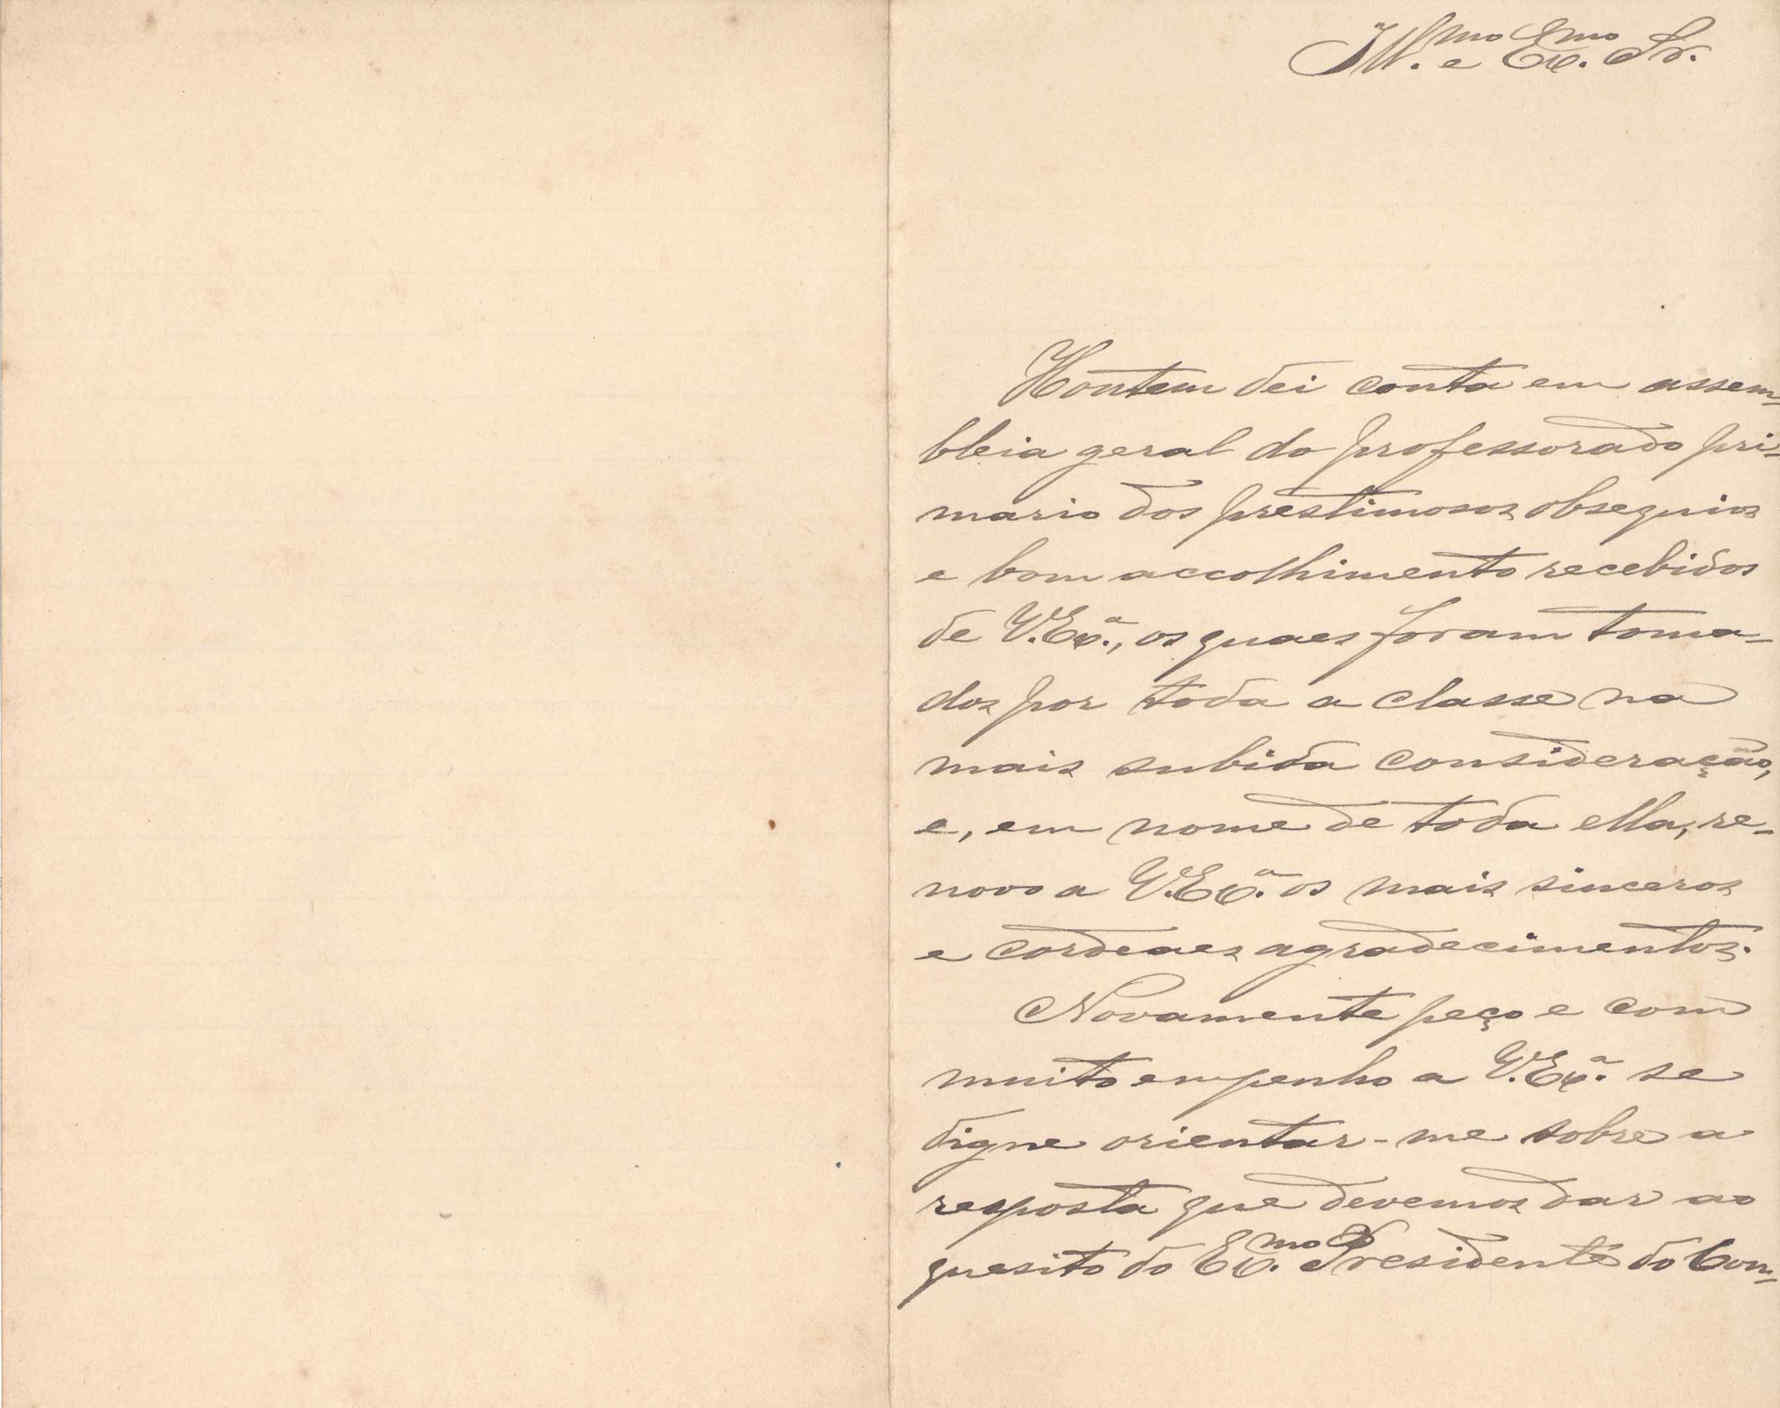 Ill.mo e Ex.mo Sr.
Hontem dei conta em assem-
bleia geral do professorado pri-
mario dos prestimosos obsequios
e bom accolhimento recebidos
de V. Ex.ª, os quaes foram toma-
dos por toda a classe na
mais subida consideração,
e, em nome de toda ella, re-
novo a V. Ex.ª os mais sinceros
e cordeaes agradecimentos.
Novamente peço e com
muito empenho a V. Ex.ª se
digne orientar-me sobre a
resposta que devemos dar ao
quesito do Ex.mo Presidente do Con-